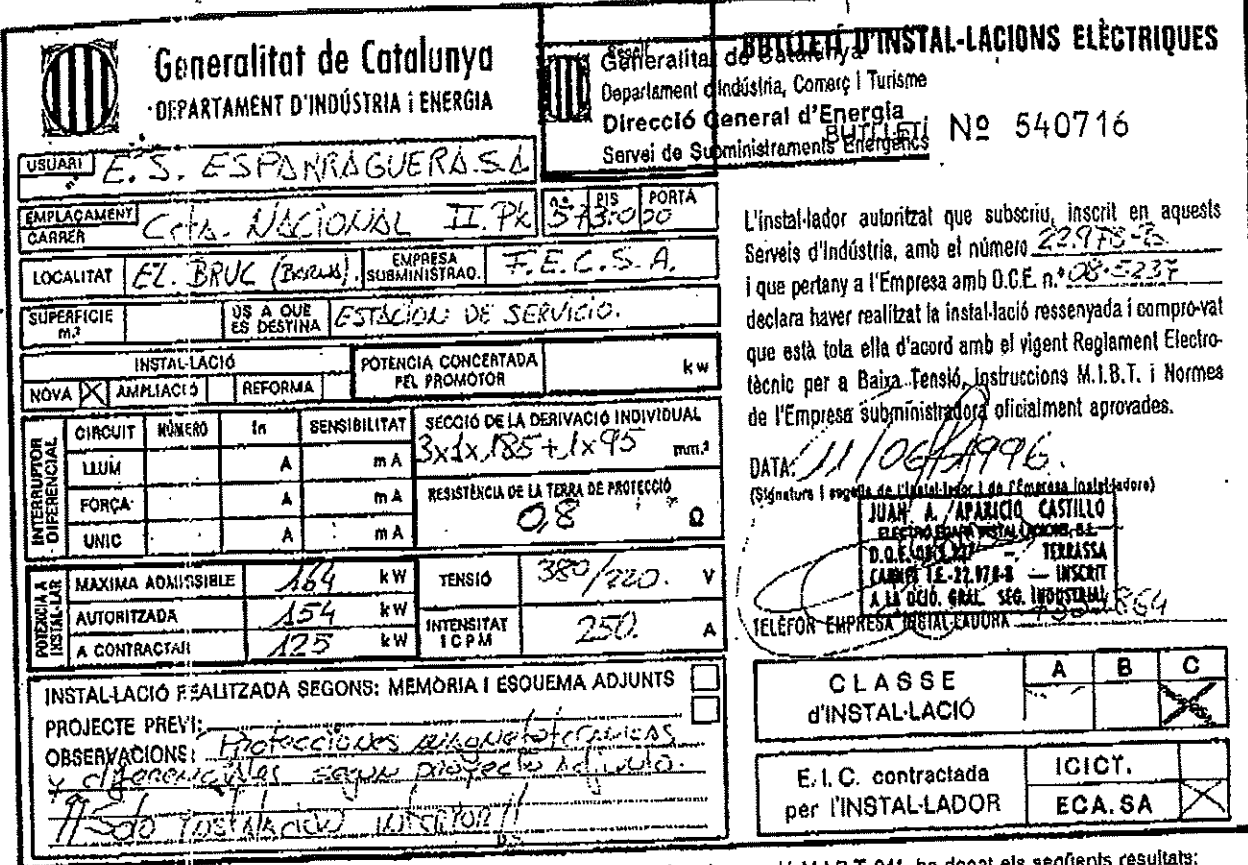 Generalitat de Catalunya
DEPARTAMENT D'INDÚSTRIA i ENERGIA
Segell
Generalitat de Catalunya
Departament d'Indústria, Comerç i Turisme
Direcció General d'Energia
Servei de Subministraments Energètics
BUTLLETÍ D'INSTAL-LACIONS ELÈCTRIQUES
BUTLLETÍ Nº 540716
USUARI E.S. ESPARRAGUERA.S.A
EMPLAÇAMENT
CARRER Crta. NACIONAL II. PK
n.º PIS PORTA
573.000
LOCALITAT EL BRUC
EMPRESA
SUBMINISTRAD. F.E.C.S.A.
SUPERFICIE
m.²
ÚS A QUE
ES DESTINA ESTACION DE SERVICIO.
INSTAL·LACIÓ
NOVA X AMPLIACIÓ REFORMA
POTENCIA CONCERTADA
PEL PROMOTOR kw
INTERRUPTOR
DIFERENCIAL
CIRCUIT NÚMERO In SENSIBILITAT
LLUM A mA
FORÇA A mA
UNIC A mA
SECCIÓ DE LA DERIVACIÓ INDIVIDUAL
3x1x185+1x95 mm.²
RESISTÈNCIA DE LA TERRA DE PROTECCIÓ
0,8 Ω
POTENCIA A
INSTAL·LAR
MAXIMA ADMISSIBLE 164 kW
AUTORITZADA 154 kW
A CONTRACTAR 125 kW
TENSIÓ 380/220. V
INTENSITAT
ICPM 250. A
INSTAL·LACIÓ REALITZADA SEGONS: MEMÒRIA I ESQUEMA ADJUNTS
PROJECTE PREVI:
OBSERVACIONS: Protecciones magnetotermicas
y diferenciales segun proyecto adjunto.
Solo INSTALACION INTERIOR!!
L'instal·lador autoritzat que subscriu, inscrit en aquests
Serveis d'Indústria, amb el número 22.978-B
i que pertany a l'Empresa amb D.C.E. n.º 08-5237
declara haver realitzat la instal·lació ressenyada i compro-vat
que està tota ella d'acord amb el vigent Reglament Electro-
tècnic per a Baixa Tensió, Instruccions M.I.B.T. i Normes
de l'Empresa subministradora oficialment aprovades.
DATA: 11/06/1996.
(Signatura i segells de l'instal·lador i de l'Empresa instal·ladora)
JUAN A. APARICIO CASTILLO
TERRASSA
CARNET I.E.-22.978-B — INSCRIT
A LA DCIÓ. GRAL. SEG. INDUSTRIAL
TELÈFON EMPRESA INSTAL·LADORA
CLASSE
d'INSTAL·LACIÓ
A B C
X
E.I.C. contractada
per l'INSTAL·LADOR
ICICT.
ECA. SA X
M.I.B.T. 041, ha donat els següents resultats: